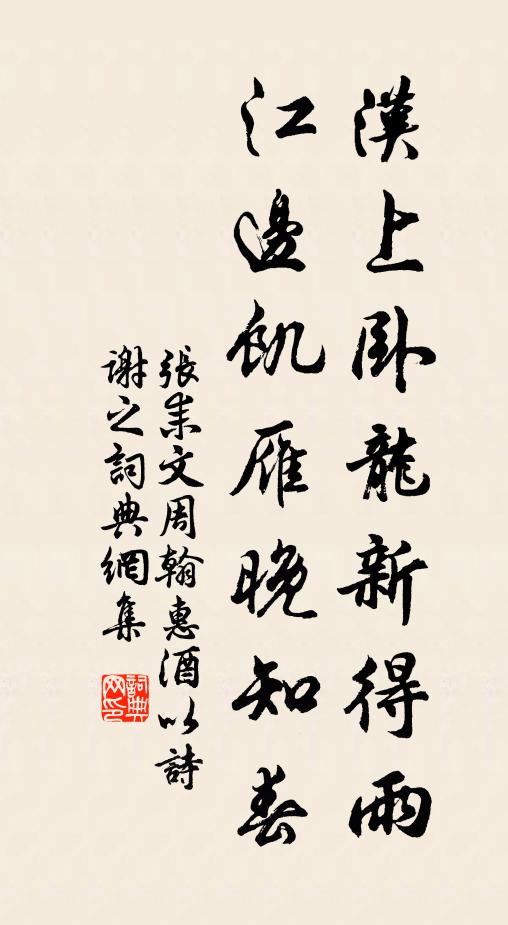 漢上卧龍新得雨
江邊飢雁晚知春
張耒文周翰惠酒以詩
謝之詞典網集
詞典網印